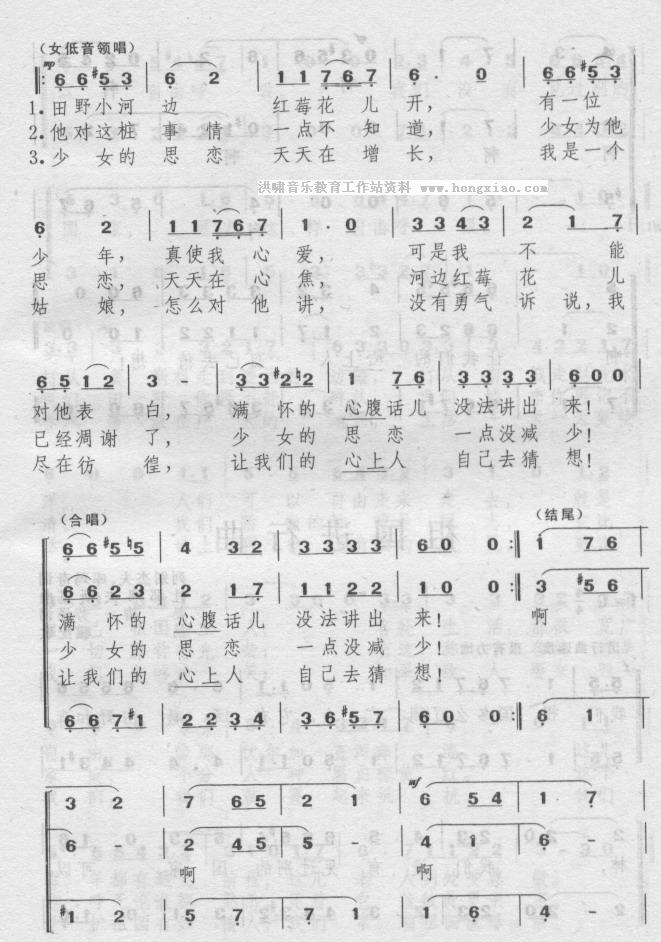 （女低音领唱）
mp
‖: 6 6 #5 3 | 6 2 | 1 1 7 6 7 | 6 · 0 | 6 6 #5 3 |
1. 田野小河 边 红莓花 儿 开， 有一位
2. 他对这桩 事 情 一点不 知 道， 少女为他
3. 少 女的 思 恋 天天在 增 长， 我是一个
洪啸音乐教育工作站资料 www.hongxiao.com
6 2 | 1 1 7 6 7 | 1 · 0 | 3 3 4 3 | 2 1 7 |
少 年， 真使我 心 爱， 可是我 不 能
思 恋， 天天在 心 焦， 河边红莓 花 儿
姑 娘， 怎么对 他 讲， 没有勇气 诉 说，我
6 5 1 2 | 3 - | 3 3 #2 ♮2 | 1 7 6 | 3 3 3 3 | 6 0 0 |
对他表 白， 满 怀的 心腹话儿 没法讲出 来！
已经凋谢 了， 少 女的 思 恋 一点没减 少！
尽在彷 徨， 让我们的 心上人 自己去猜 想！
（合唱）
（结尾）
6 6 #5 ♮5 | 4 3 2 | 3 3 3 3 | 6 0 0 :‖ 1 7 6 |
6 6 2 3 | 2 1 7 | 1 1 1 1 | 1 0 0 :‖ 3 #5 6 |
满 怀的 心腹话儿 没法讲出 来！ 啊
少 女的 思 恋 一点没减 少！
让我们的 心上人 自己去猜 想！
6 6 7 #1 | 2 2 3 4 | 3 3 #5 7 | 6 0 0 :‖ 6 1 |
mf
3 2 | 7 6 5 | 2 1 | 6 5 4 | 1 7 |
6 - | 2 4 5 | 5 3 | 4 1 | 6 - |
啊 啊
#1 2 | 5 7 | 7 1 | 2 6 | 4 - |